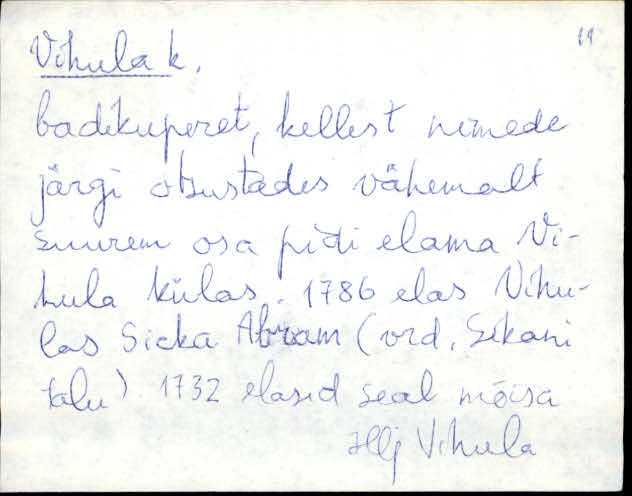 Vihula k. 19
badikuperet, kellest nimede
järgi otsustades vähemalt
suurem osa pidi elama Vi-
hula külas. 1786 elas Vihu-
las Sicka Abram (vrd. Sikani
talu). 1732 elasid seal mõisa
Hlj Vihula